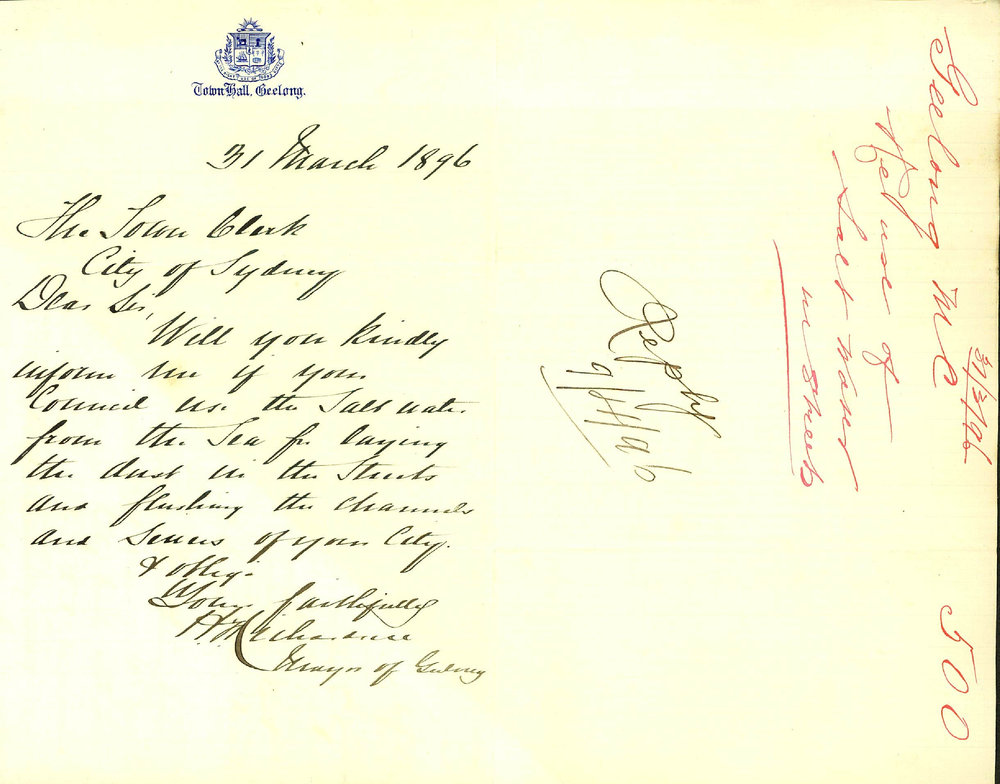 Town Hall, Geelong.
31 March 1896
The Town Clerk
City of Sydney
Dear Sir,
Will you kindly
inform me if your
Council use the Salt water
from the Sea for laying
the dust in the Streets
and flushing the channels
and Sewers of your City.
& oblige
Yours faithfully
H. Richardson
Mayor of Geelong
Reply
9/4/96
Geelong M C
31/3/96
Re use of
Salt Water
in Streets
500